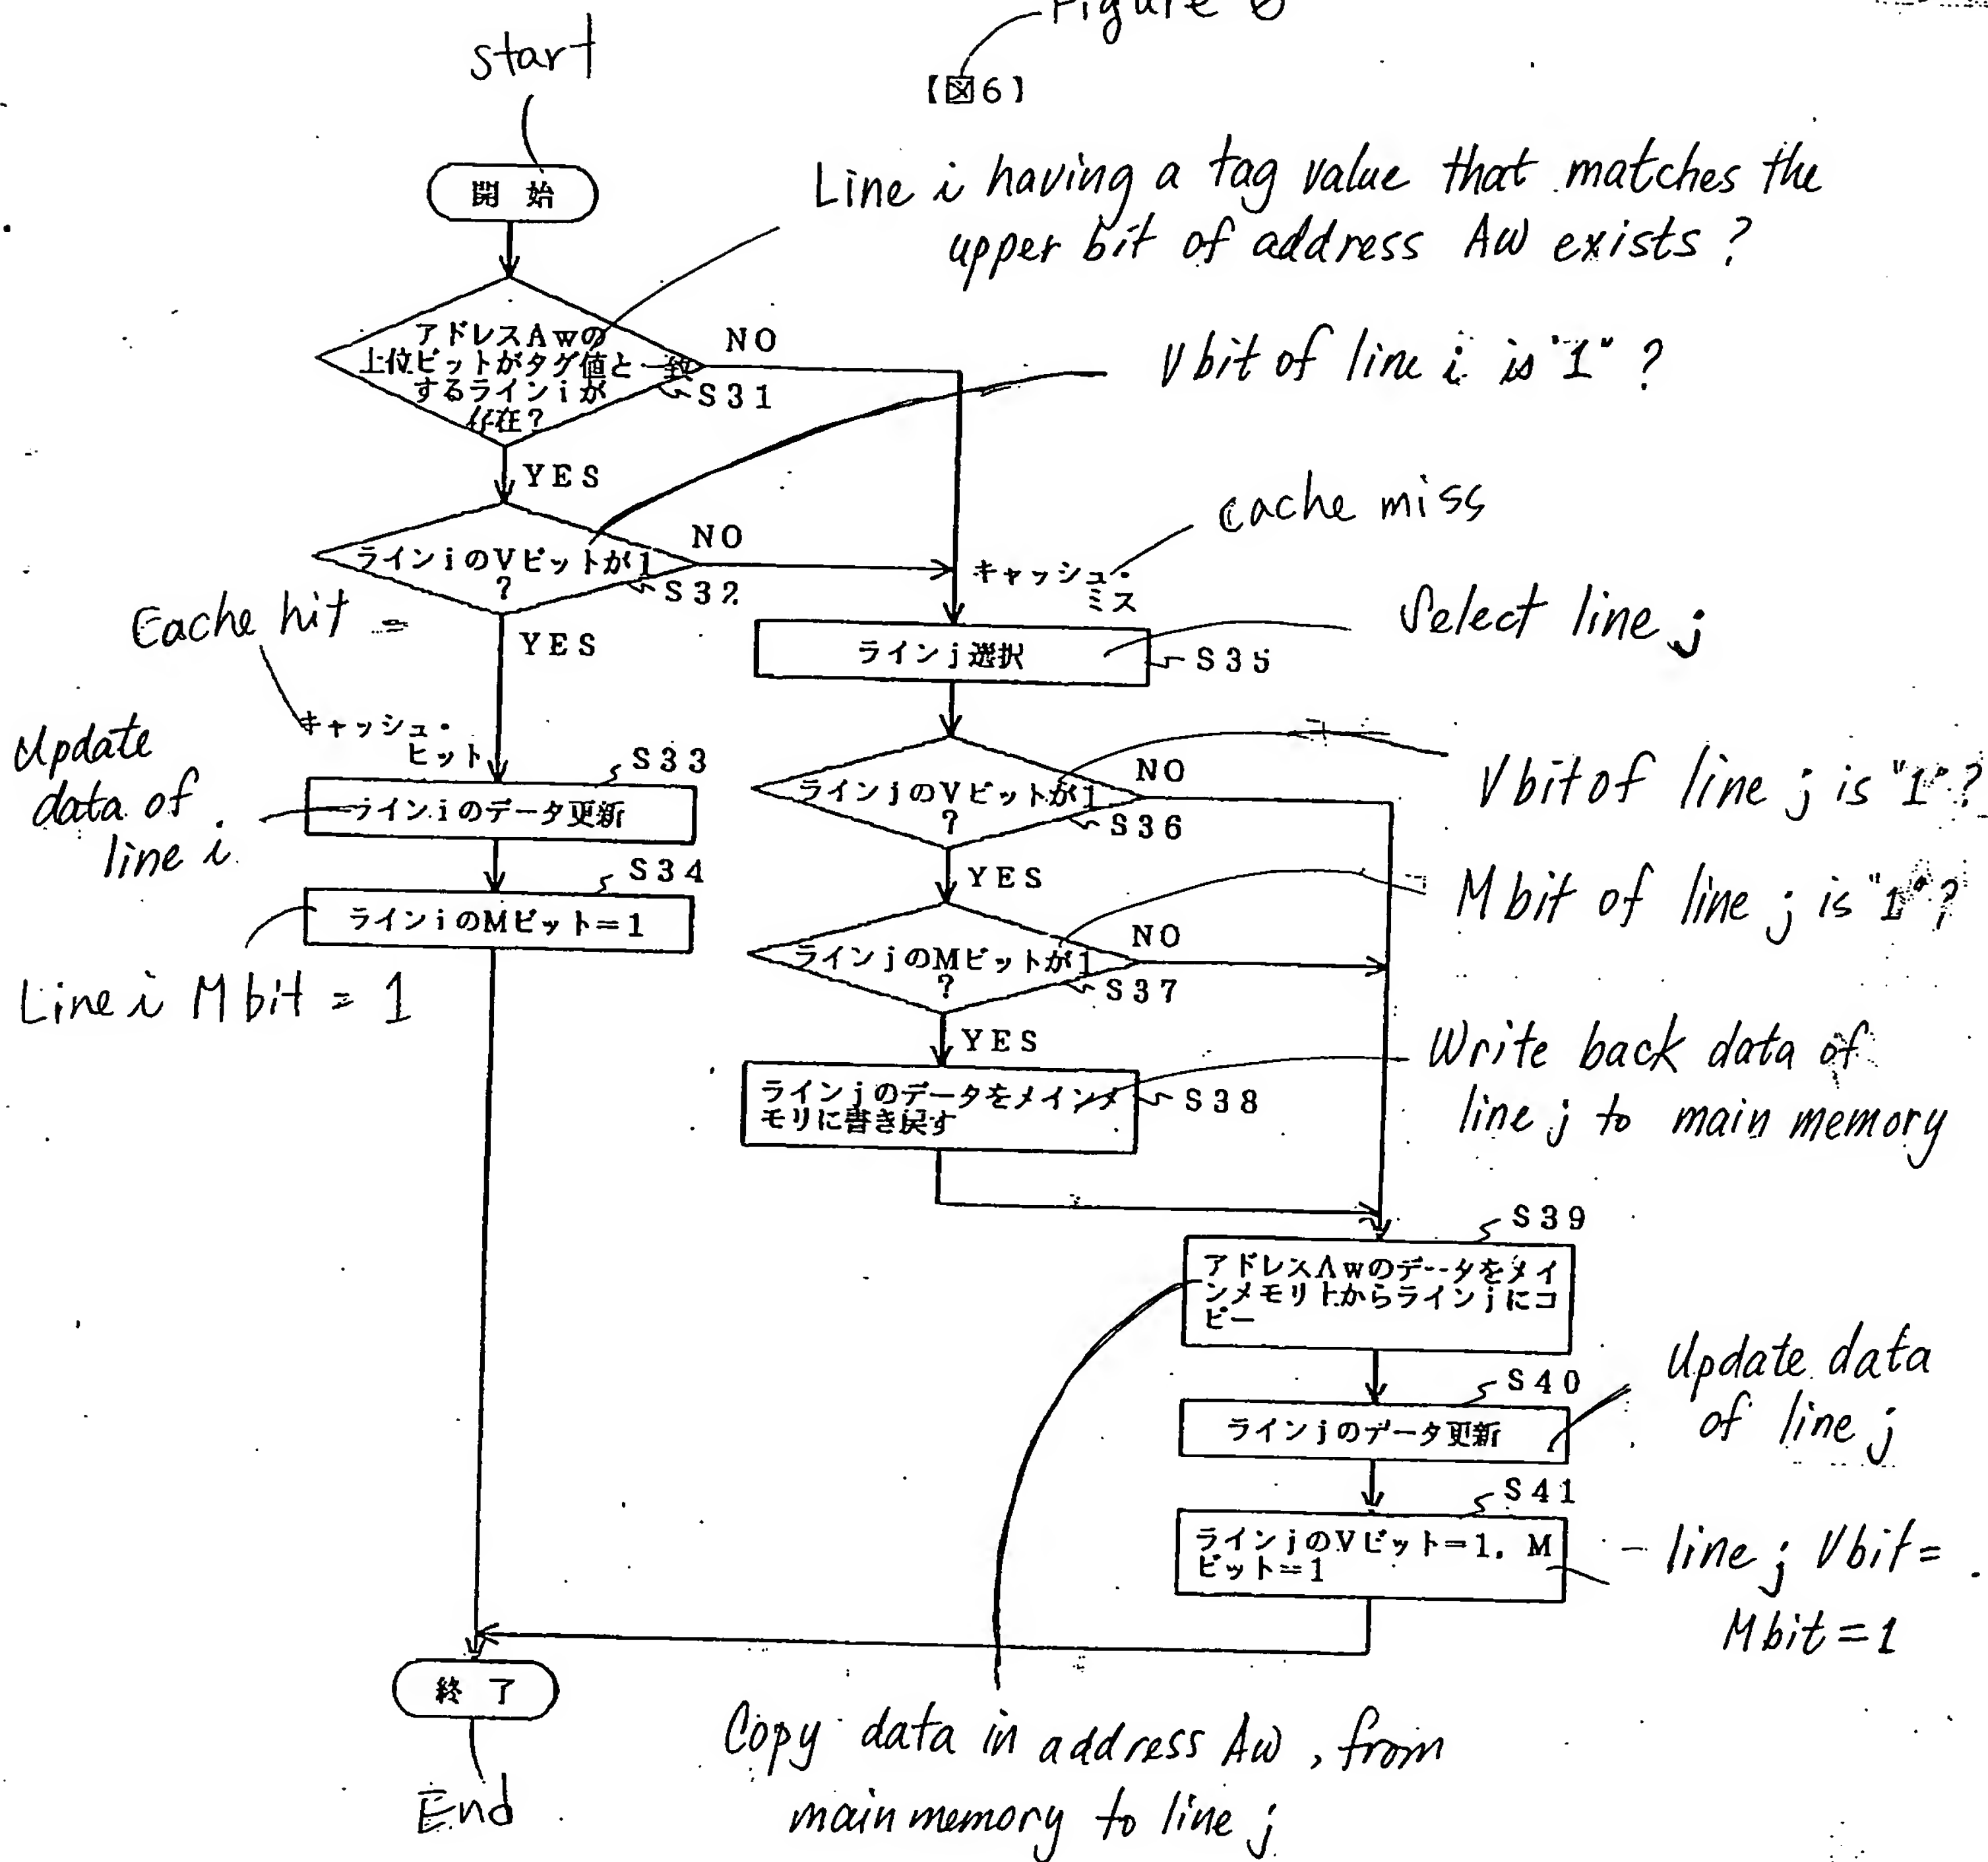 Figure 6
【図6】
start
開 始
Line i having a tag value that matches the
upper bit of address Aw exists?
アドレスAwの
上位ビットがタグ値と一致
するラインiが
存在?
NO
S31
YES
V bit of line i is "1"?
ラインiのVビットが1
?
NO
S32
YES
cache miss
キャッシュ・
ミス
Cache hit =
キャッシュ・
ヒット
Select line j
ラインj選択
S35
Update
data of
line i
S33
ラインiのデータ更新
S34
ラインiのMビット=1
Line i M bit = 1
V bit of line j is "1"?
ラインjのVビットが1
?
NO
S36
YES
M bit of line j is "1"?
ラインjのMビットが1
?
NO
S37
YES
Write back data of
line j to main memory
ラインjのデータをメインメ
モリに書き戻す
S38
S39
アドレスAwのデータをメイ
ンメモリ上からラインjにコ
ピー
Update data
of line j
S40
ラインjのデータ更新
S41
ラインjのVビット=1. M
ビット=1
line j V bit =
M bit = 1
終 了
End
Copy data in address Aw, from
main memory to line j